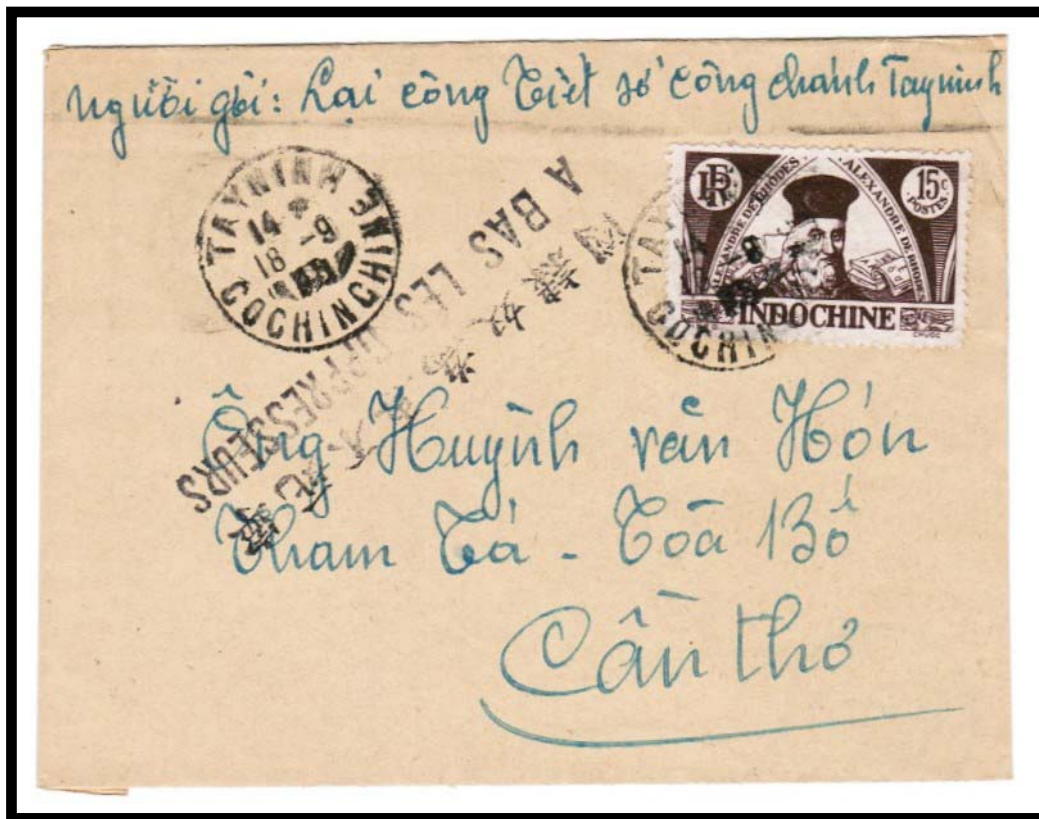 người gởi: Lại công Tiết sở công chánh Tayninh
TAYNINH
14
18 -9
COCHINCHINE
A BAS LES OPPRESSEURS
RF
ALEXANDRE DE RHODES
ALEXANDRE DE RHODES
15c
POSTES
INDOCHINE
TAYNINH
COCHIN
Ông Huỳnh văn Hớn
Tham Tá - Tòa Bố
Cần thơ